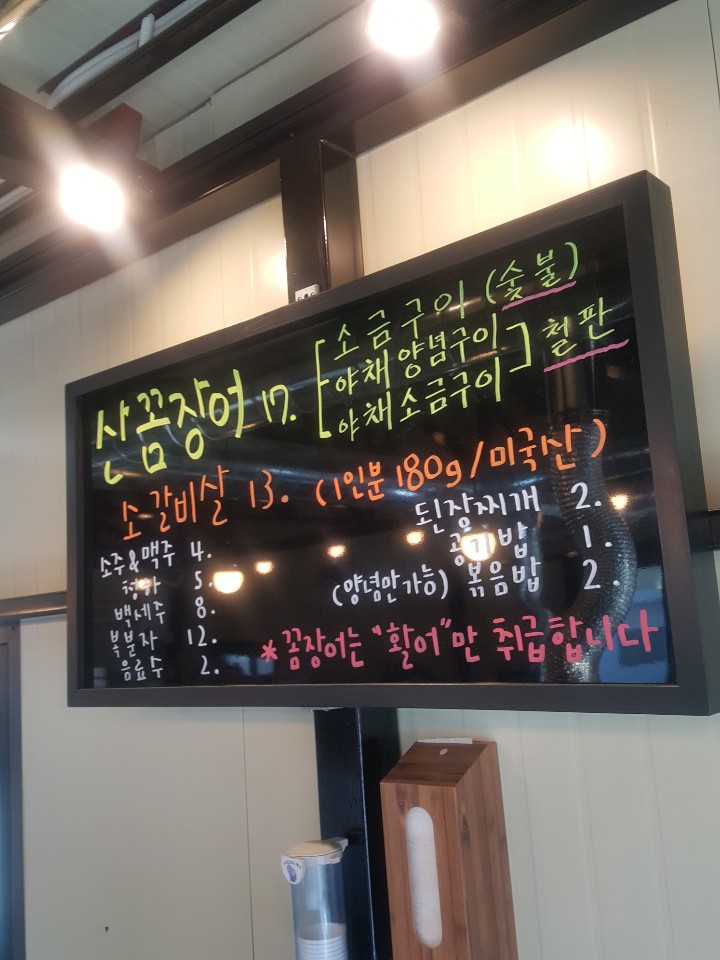 산꼼장어 17. [소금구이 (숯불)
야채양념구이
야채소금구이] 철판
소갈비살 13. (1인분 180g/미국산)
소주&맥주 4.
청하 5.
백세주 8.
복분자 12.
음료수 2.
된장찌개 2.
공기밥 1.
(양념만가능) 볶음밥 2.
*꼼장어는 "활어"만 취급합니다